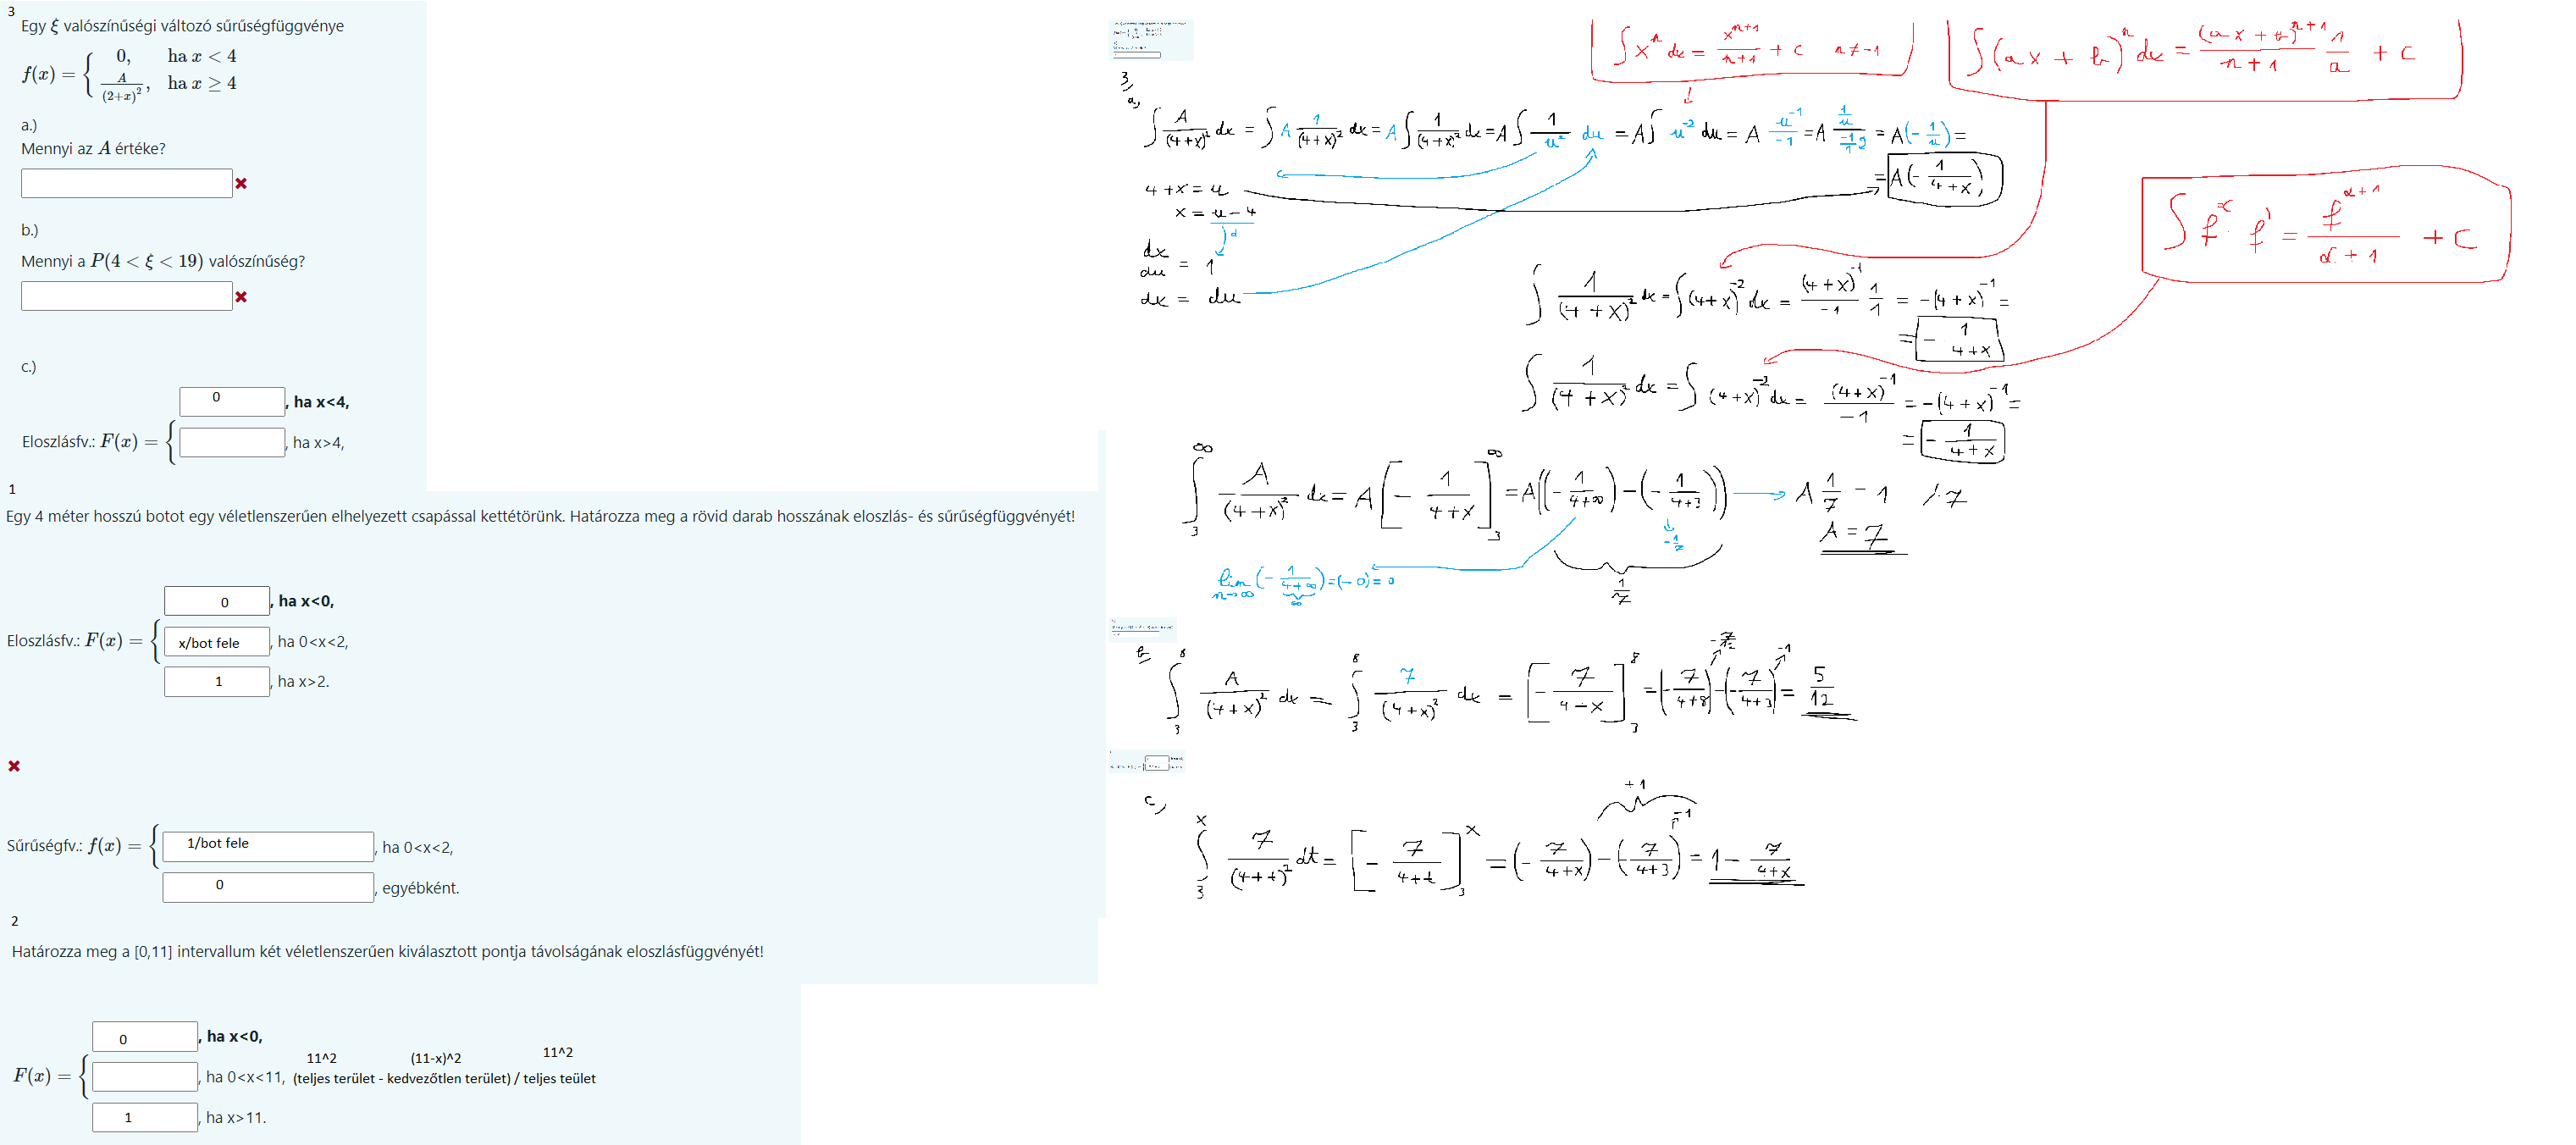 3
Egy ξ valószínűségi változó sűrűségfüggvénye
f(x) = { 0, ha x < 4
A/(2+x)², ha x ≥ 4
a.)
Mennyi az A értéke?
b.)
Mennyi a P(4 < ξ < 19) valószínűség?
c.)
0 , ha x<4,
Eloszlásfv.: F(x) = {
, ha x>4,
1
Egy 4 méter hosszú botot egy véletlenszerűen elhelyezett csapással kettétörünk. Határozza meg a rövid darab hosszának eloszlás- és sűrűségfüggvényét!
0 , ha x<0,
Eloszlásfv.: F(x) = { x/bot fele , ha 0<x<2,
1 , ha x>2.
Sűrűségfv.: f(x) = { 1/bot fele , ha 0<x<2,
0 , egyébként.
2
Határozza meg a [0,11] intervallum két véletlenszerűen kiválasztott pontja távolságának eloszlásfüggvényét!
0 , ha x<0,
11^2 (11-x)^2 11^2
F(x) = { , ha 0<x<11, (teljes terület - kedvezőtlen terület) / teljes teület
1 , ha x>11.
∫ xⁿ dx = xⁿ⁺¹/(n+1) + c n ≠ -1
∫ (ax + b)ⁿ dx = (ax + b)ⁿ⁺¹/(n+1) 1/a + c
3,
a,
∫ A/(4+x)² dx = ∫ A 1/(4+x)² dx = A ∫ 1/(4+x)² dx = A ∫ 1/u² du = A ∫ u⁻² du = A u⁻¹/-1 = A (1/u)/(-1/1) = A(-1/u) =
= A(-1/(4+x))
4 + x = u
x = u - 4
dx/du = 1
dx = du
∫ f^α · f' = f^(α+1)/(α+1) + c
∫ 1/(4+x)² dx = ∫ (4+x)⁻² dx = (4+x)⁻¹/-1 1/1 = -(4+x)⁻¹ =
= -1/(4+x)
∫ 1/(4+x)² dx = ∫ (4+x)⁻² dx = (4+x)⁻¹/-1 = -(4+x)⁻¹ =
= -1/(4+x)
∫₃^∞ A/(4+x)² dx = A[-1/(4+x)]₃^∞ = A((-1/(4+∞)) - (-1/(4+3))) → A 1/7 - 1 /·7
-1/7
A = 7
lim n→∞ (-1/(4+∞)) = (-0) = 0
∞
1/7
b,
∫₃⁸ A/(4+x)² dx = ∫₃⁸ 7/(4+x)² dx = [-7/(4-x)]₃⁸ = (-7/(4+8)) - (-7/(4+3)) = 5/12
-1
c,
+1
-1
∫₃ˣ 7/(4+t)² dt = [-7/(4+t)]₃ˣ = (-7/(4+x)) - (-7/(4+3)) = 1 - 7/(4+x)